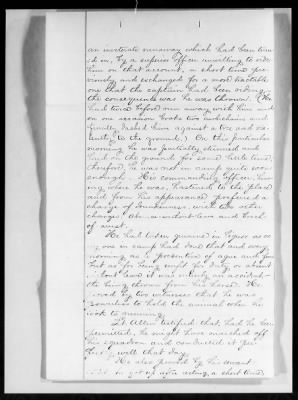 an inveterate runaway which had been turned
in, by a superior officer unwilling to ride
him on that account, a short time pre-
viously and exchanged for a more tractable
one that the captain had been riding;
the consequence was he was thrown. (He
had twice before run away with him and
on one occasion broke two curb chains and
finally dashed him against a tree and vio-
lently to the ground.) On this particular
morning he was partially stunned and
laid on the ground for some little time,
therefore he was not in camp quite soon
enough. His commanding Officer, learn-
ing where he was, hastened to the place
and from his appearance preferred a
charge of drunkenness, with the other
charges of absence without leave and breach
of arrest.
He had taken quinine in liquor as
one in camp had done that and every
morning as a preventive of ague and
but as for being unfit for duty or absent
without leave it was only an accident
the being thrown from his horse. He
proved by two witnesses that he was
to hold the animal when he
took to running.
Lt Allen testified that, had he been
permitted, he might have marched off
his squadron and conducted it per-
fectly well that day.
He also proved by his
a short time